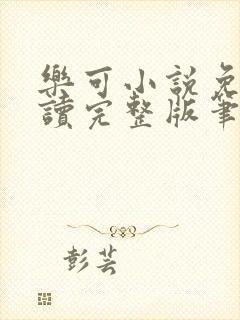 樂可小說免
讀完整版筆
彭芸